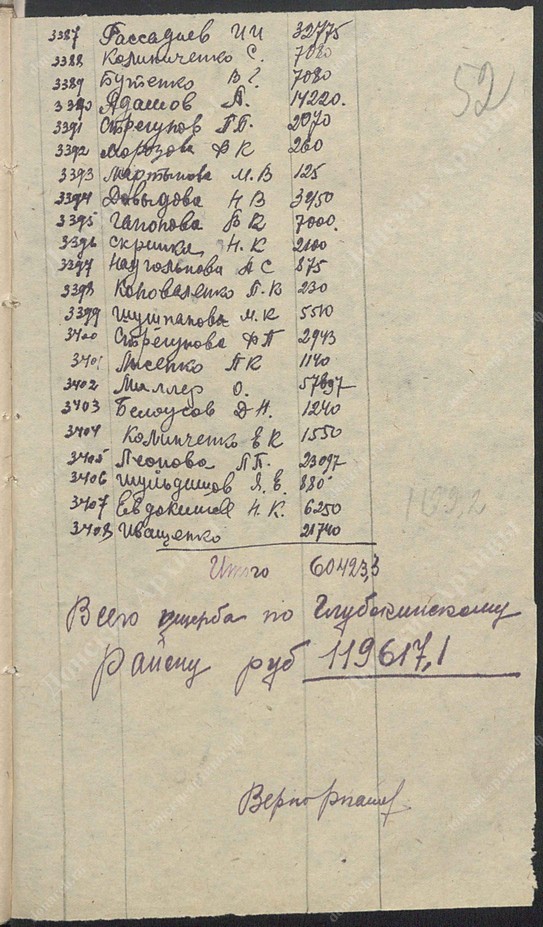 52
3387 Рассадиев И И 32775
3388 Калиниченко С. 7080
3389 Бутенко В 7080
3390 Адамов А. 14220.
3391 Стрегунов П П. 2070
3392 Морозова Ф К 260
3393 Мартынова М. В 125
3394 Давыдова Н В 3250
3395 Гапонова В К 7000.
3396 Скрипка Н. К 2100
3397 А С 875
3398 Коноваленко П. В 230
3399 М. К 5510
3400 Стрегунова Ф П 2943
3401 Лысенко П К 1140
3402 Миллер О. 57897
3403 Белоусов Д Н. 1240
3404 Калинченко Е К 1550
3405 Леонова П П. 23097
3406 Шульдишов Я. Е. 880
3407 Евдокимов Н. К. 6250
3408 Иващенко 21740
Итого 60423,3
Всего ущерба по Глубокинскому
району руб 119617,1
Верно